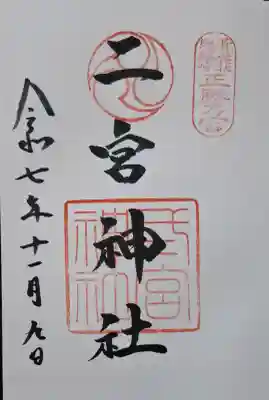 二宮神社
令和七年十一月九日
二宮神社